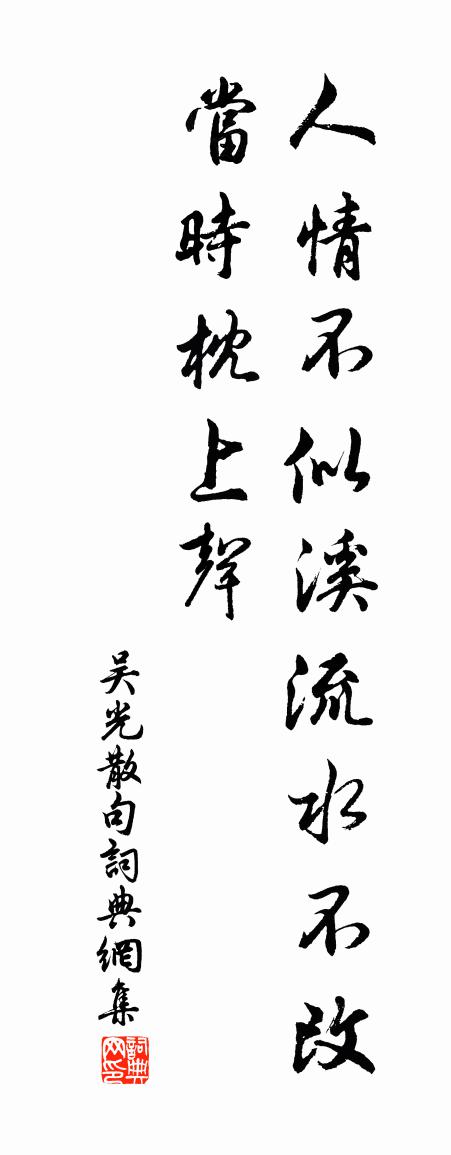 人情不似溪流水不改
當時枕上聲
吳光散句詞典網集
詞典网印